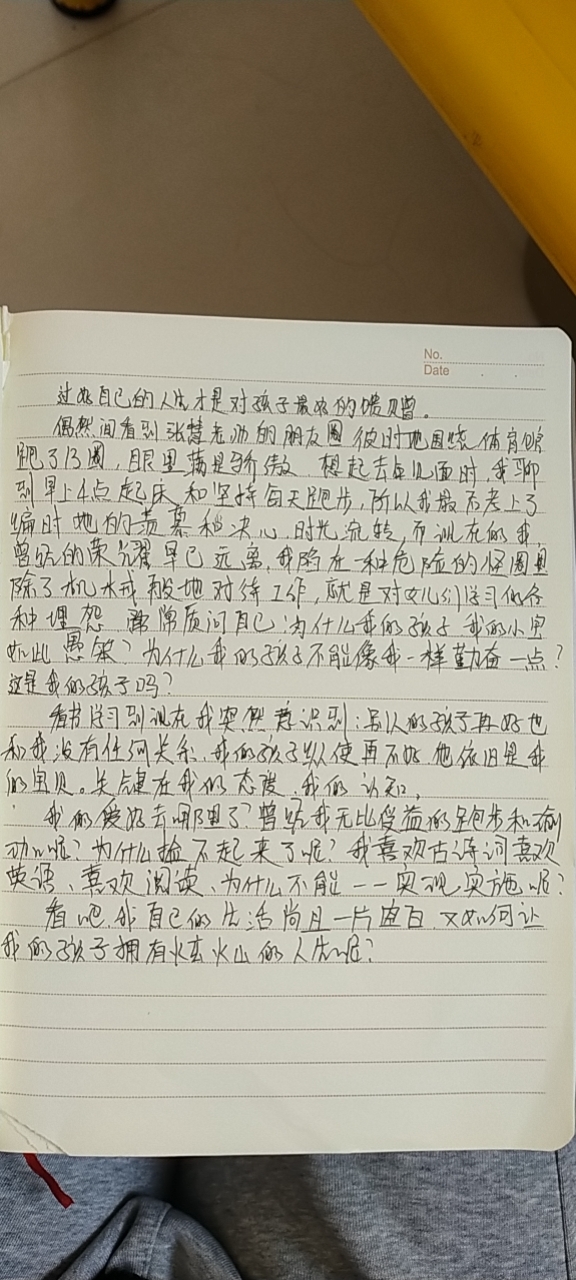 No.
Date
过好自己的人生才是对孩子最好的馈赠。
偶然间看到张慧老师的朋友圈 彼时她围绕体育馆
跑了13圈,眼里满是骄傲 想起去年见面时,我聊
到早上4点起床和坚持每天跑步,所以我
编时她的羡慕和决心,时光流转,而现在的我,
曾经的荣耀早已远离,我陷在一种危险的怪圈里
除了机械地对待工作,就是对女儿们学习的各
种埋怨 常常质问自己:为什么我的孩子 我的小宝
如此愚笨?为什么我的孩子不能像我一样勤奋一点?
这是我的孩子吗?
看书学习到现在我突然意识到:别人的孩子再好也
和我没有任何关系,我的孩子纵使再不好,他依旧是我
的宝贝。关键在我的态度,我的认知,
我的爱好去哪里了?曾经我无比受益的跑步和
呢?为什么捡不起来了呢?我喜欢古诗词喜欢
英语、喜欢阅读、为什么不能一一实现,实施呢?
看吧,我自己的生活尚且一片苍白 又如何让
我的孩子拥有的人生呢?